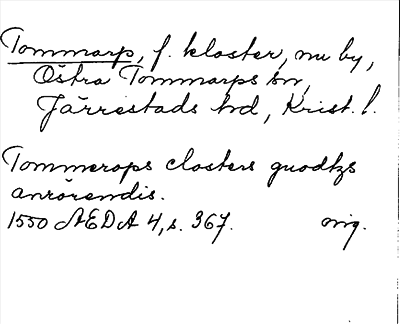 Tommarp, f. kloster, nu by,
Östra Tommarps sn,
Järrestads hd, Krist. l.
Tommerops closters guodtzs
anrörendis.
1550 NEDA 4, s. 367. orig.